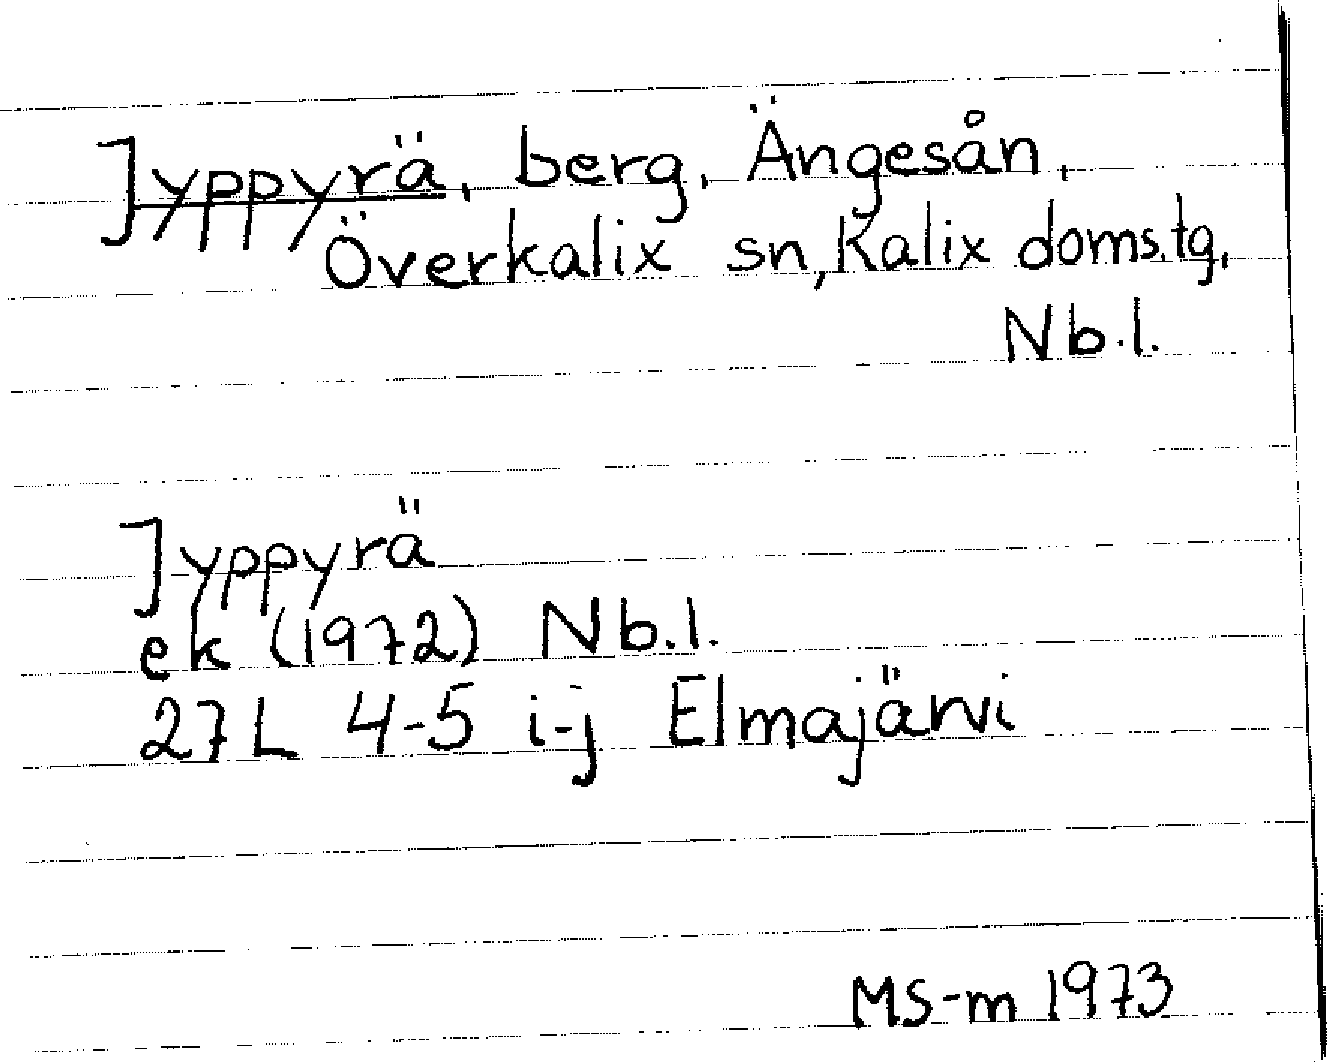 Jyppyrä, berg, Ängesån,
Överkalix sn, Kalix doms.tg,
Nb.l.
Jyppyrä
ek (1972) Nb.l.
27L 4-5 i-j Elmajärvi
MS-m 1973